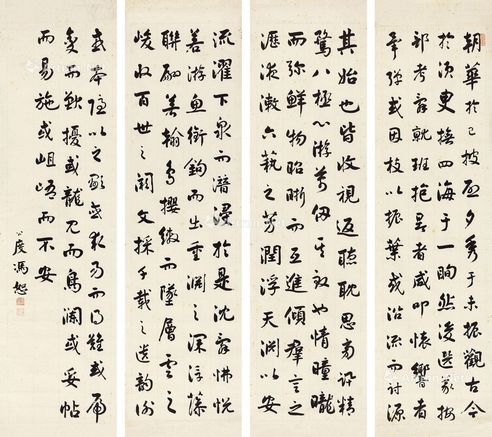 朝華於已披啟夕秀于未振觀古今
於須臾撫四海于一瞬然後選義按
部考辭就班抱景者咸叩懷響者
畢彈或因枝以振葉或沿流而討源
其始也皆收視返聽耽思旁訊精
騖八極心游萬仞其致也情曈曨
而彌鮮物昭晰而互進傾羣言之
瀝液漱六藝之芳潤浮天淵以安
流濯下泉而潛浸於是沈辭怫悅
若游魚銜鉤而出重淵之深浮藻
聯翩若翰鳥攖繳而墜層雲之
峻收百世之闕文採千載之遺韻謝
或本隱以之顯或求易而得難或虎
變而獸擾或龍見而鳥瀾或妥帖
而易施或岨峿而不安
公度馮恕